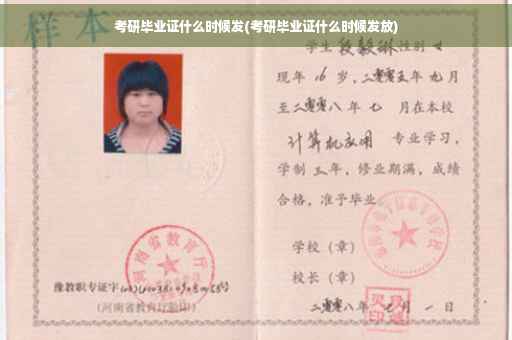 考研毕业证什么时候发(考研毕业证什么时候发放)
样本
学生 段毅琳 性别 女
现年 16 岁，二零零五年 九 月
至二零零八 年 七 月在本校
计算机应用 专业学习，
学制 三 年，修业期满，成绩
合格，准予毕业
学校（章）
校长（章）
二零零八年 七 月 一 日
河南省教育厅
豫教职专证字
（河南省教育厅验印）